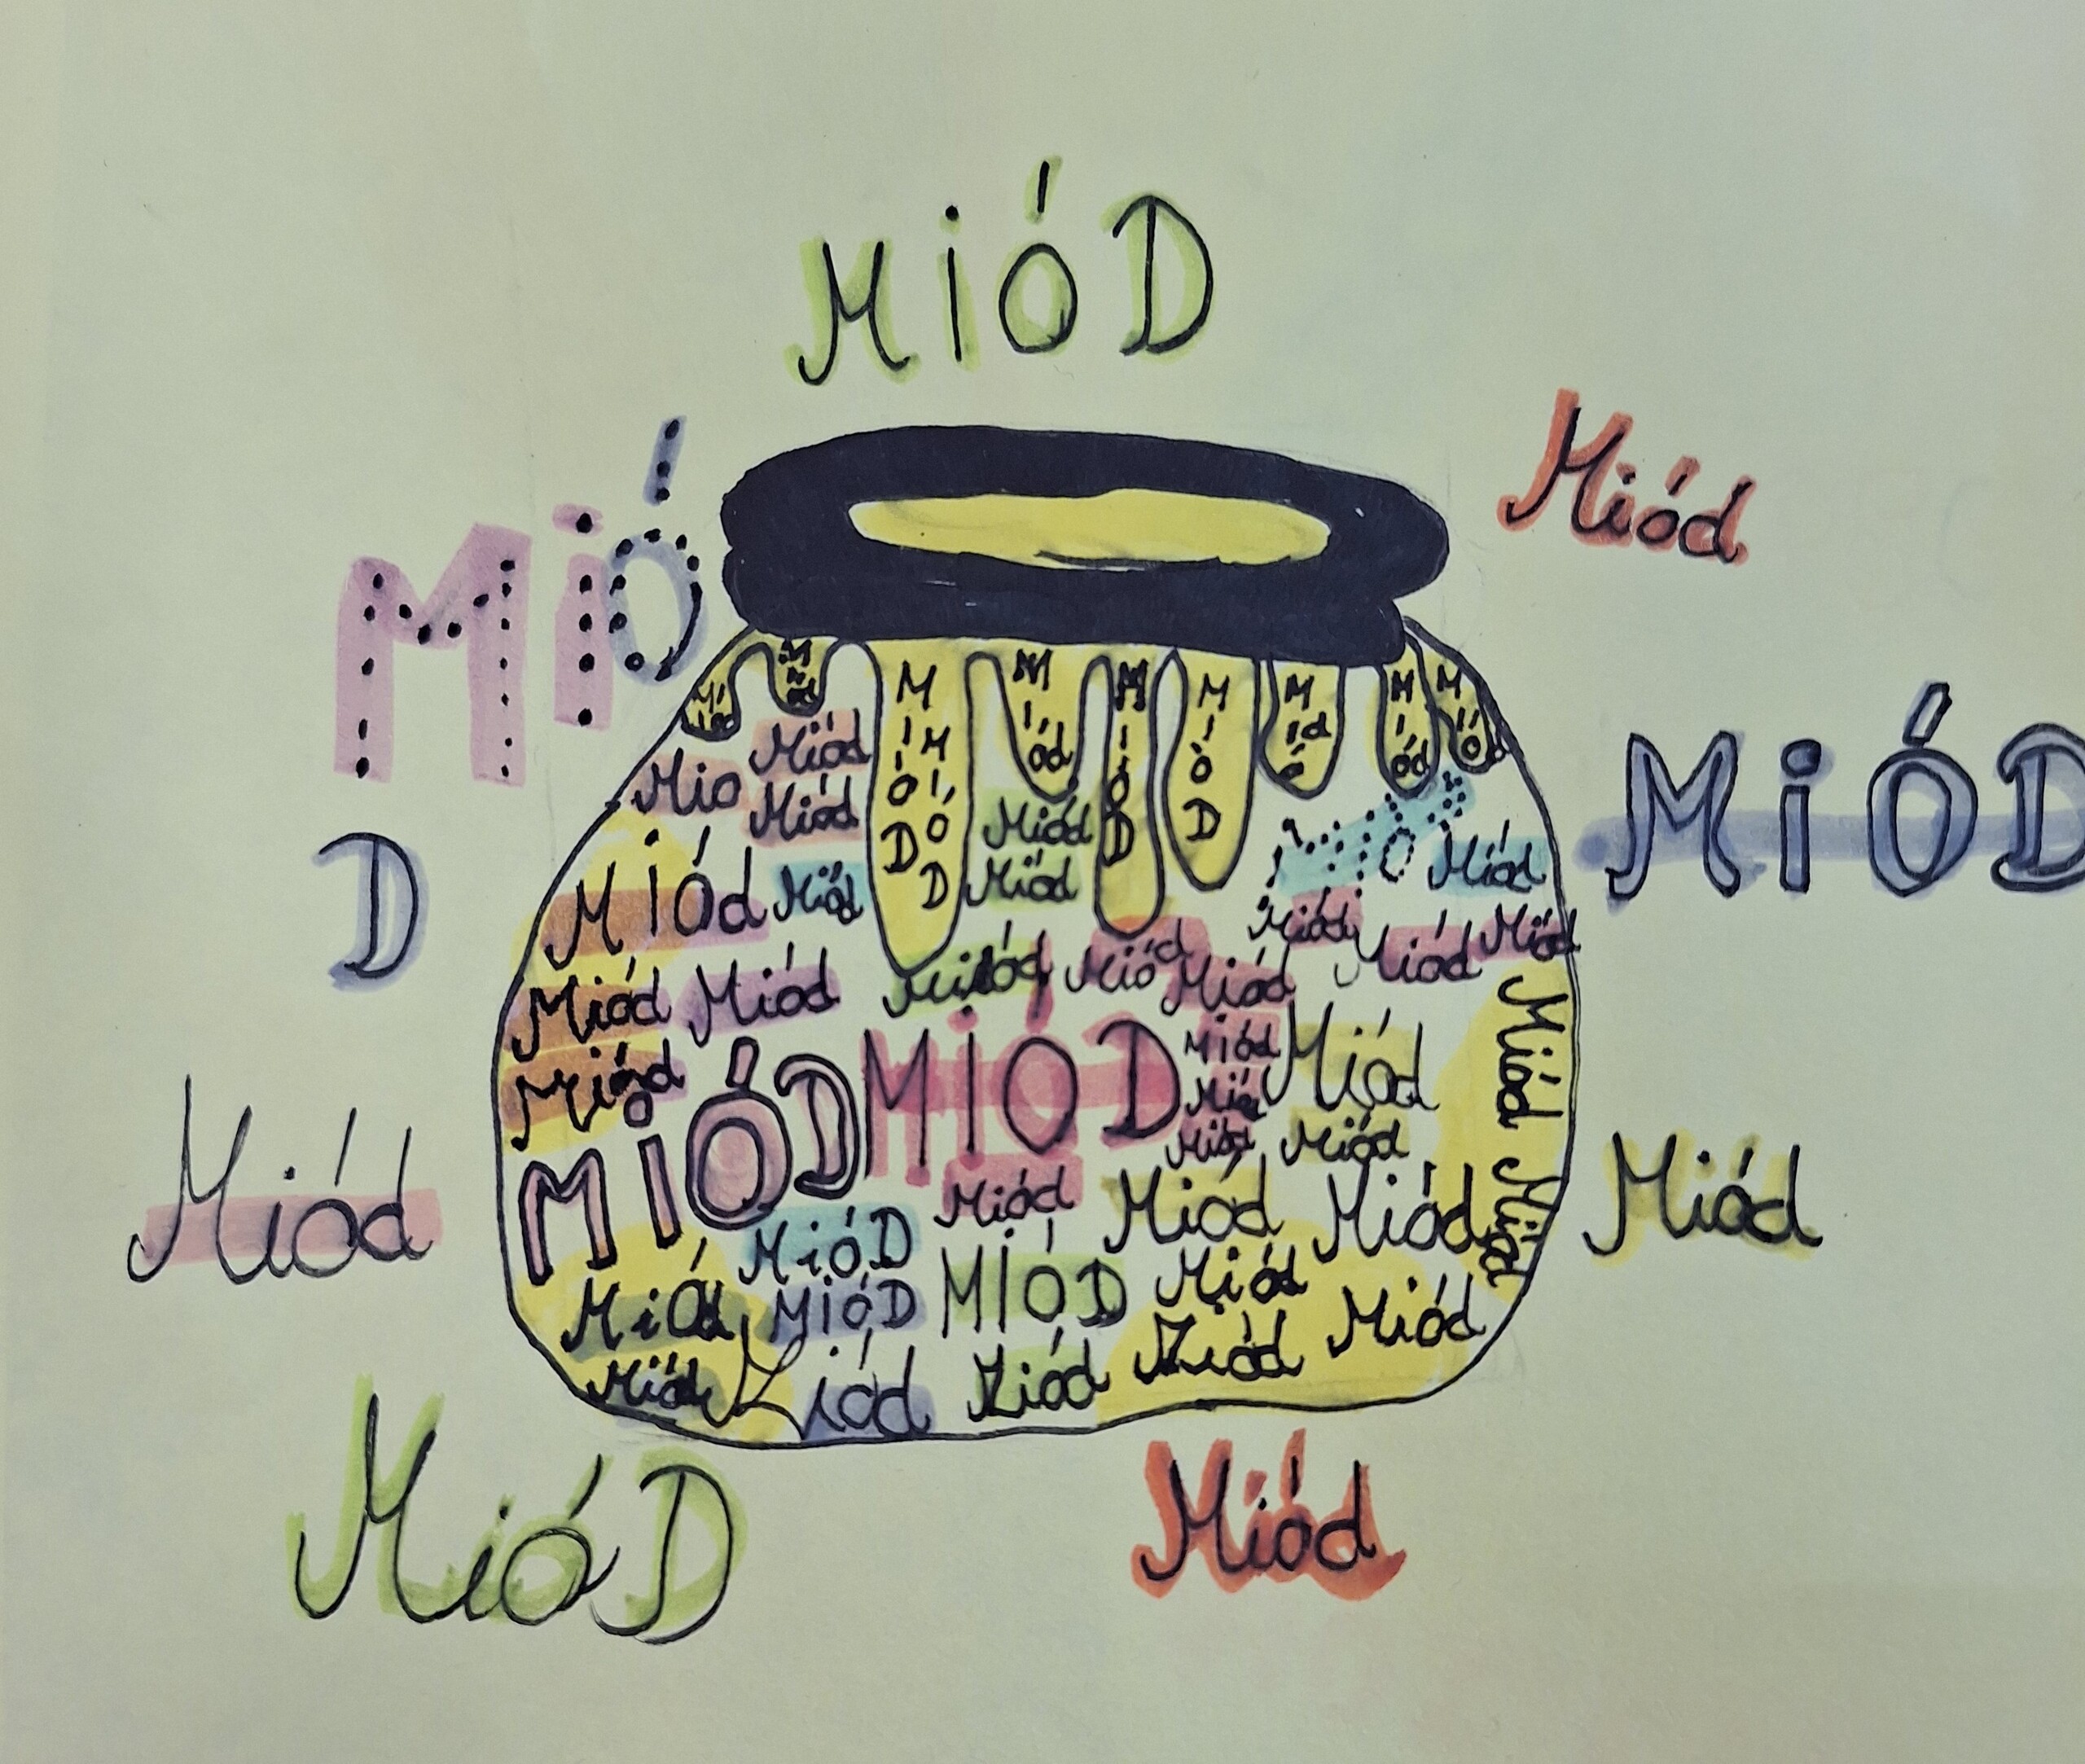 MiÓD
Miód
MiÓ
D
MiÓD
Miód
Miód
MiÓD
Miód
Miód
Miód
M i ó d
MiÓD
MiÓD
Miód
MiÓD
MiÓD
Miód
Miód
Miód
Mio
Miód
Miód
Miód
MiÓd
Miód
Miód
Miód
Miód
Miód
Miód
Miód
Miód
Miód
Miód
Miód
Miód
Miód
MiÓD
MiÓD
Miód
Miód
Miód
Miód
Miód
Miód
Miód
Miód
Miód
Miód
MióD
MióD
MIÓD
Miód
Miód
Miód
Miód
Miód
Miód
Miód
MióD
Miód